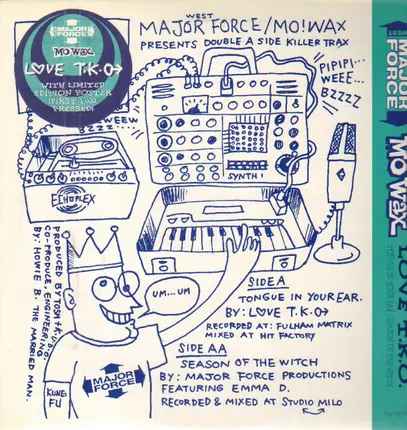 WEST
MAJOR FORCE/MO!WAX
PRESENTS DOUBLE A SIDE KILLER TRAX
MAJOR
FORCE
MO WAX
LOVE T.K.O
WITH LIMITED
EDITION POSTER
(FIRST 1,000
PRESSED)
WEEW
BZZZ...
PIPIPI...
WEEE...
BZZZZ
SYNTH 1
ECHOPLEX
UM...UM
MAJOR
FORCE
KUNG
FU
PRODUCED BY TOSH + K.U.D.O.
CO-PRODUCE, ENGINEERING
BY: HOWIE B. THE MARRIED MAN.
SIDE A
TONGUE IN YOUR EAR.
BY: LOVE T.K.O
RECORDED AT: FULHAM MATRIX
MIXED AT HIT FACTORY
SIDE AA
SEASON OF THE WITCH
BY: MAJOR FORCE PRODUCTIONS
FEATURING EMMA D.
RECORDED & MIXED AT STUDIO MILO
WEST
MAJOR
FORCE
MO WAX
LOVE T.K.O.